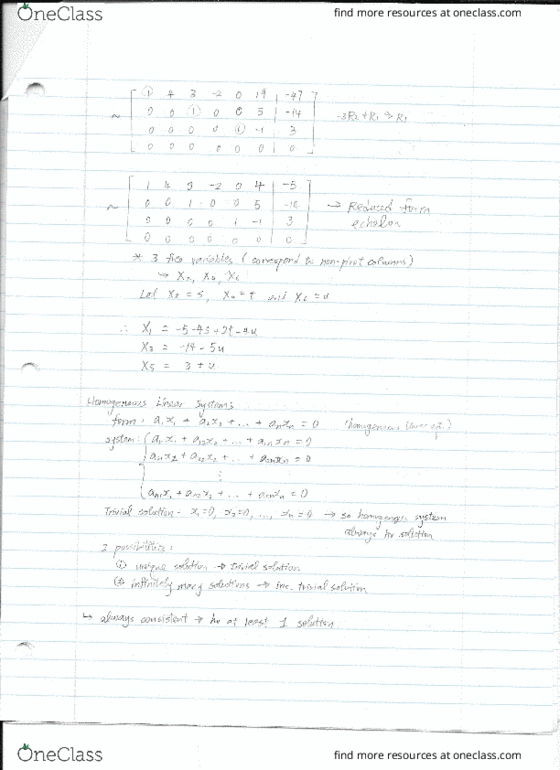 OneClass
find more resources at oneclass.com
1 4 3 -2 0 19 | -47
0 0 1 0 0 5 | -14
~ 0 0 0 0 1 -1 | 3
0 0 0 0 0 0 | 0
-3R2 + R1 → R1
1 4 0 -2 0 4 | -5
~ 0 0 1 0 0 5
0 0 0 0 1 -1 | 3
0 0 0 0 0 0 | 0
→ Reduced form
echelon
* 3 free variables (correspond to non-pivot columns)
↪ X2, X4, X6
Let X2 = s, X4 = t and X6 = u
∴ X1 = -5-4s+2t-4u
X3 = -14 - 5u
X5 = 3 + u
Homogeneous Linear Systems
form: a1x1 + a2x2 + ... + anxn = 0
system:
⋮
Trivial solution - x1=0, x2=0, ..., xn=0 → so homogeneous system
always hv solution
2 possibilities:
① unique solution → trivial solution
② infinitely many solutions → inc. trivial solution
↳ always consistent → hv at least 1 solution
OneClass
find more resources at oneclass.com